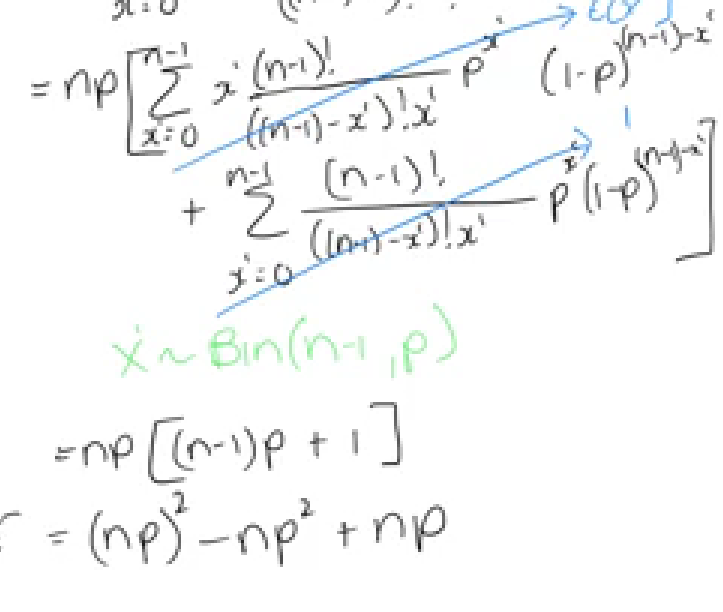 x'=0
= np[ Σ_{x'=0}^{n-1} x' (n-1)! / ((n-1)-x')! x' p^{x'} (1-p)^{(n-1)-x'}
+ Σ_{x'=0}^{n-1} (n-1)! / ((n-1)-x')! x' p^{x'} (1-p)^{(n-1)-x'} ] 1
X' ~ Bin(n-1, p)
= np[(n-1)p + 1]
= (np)² - np² + np